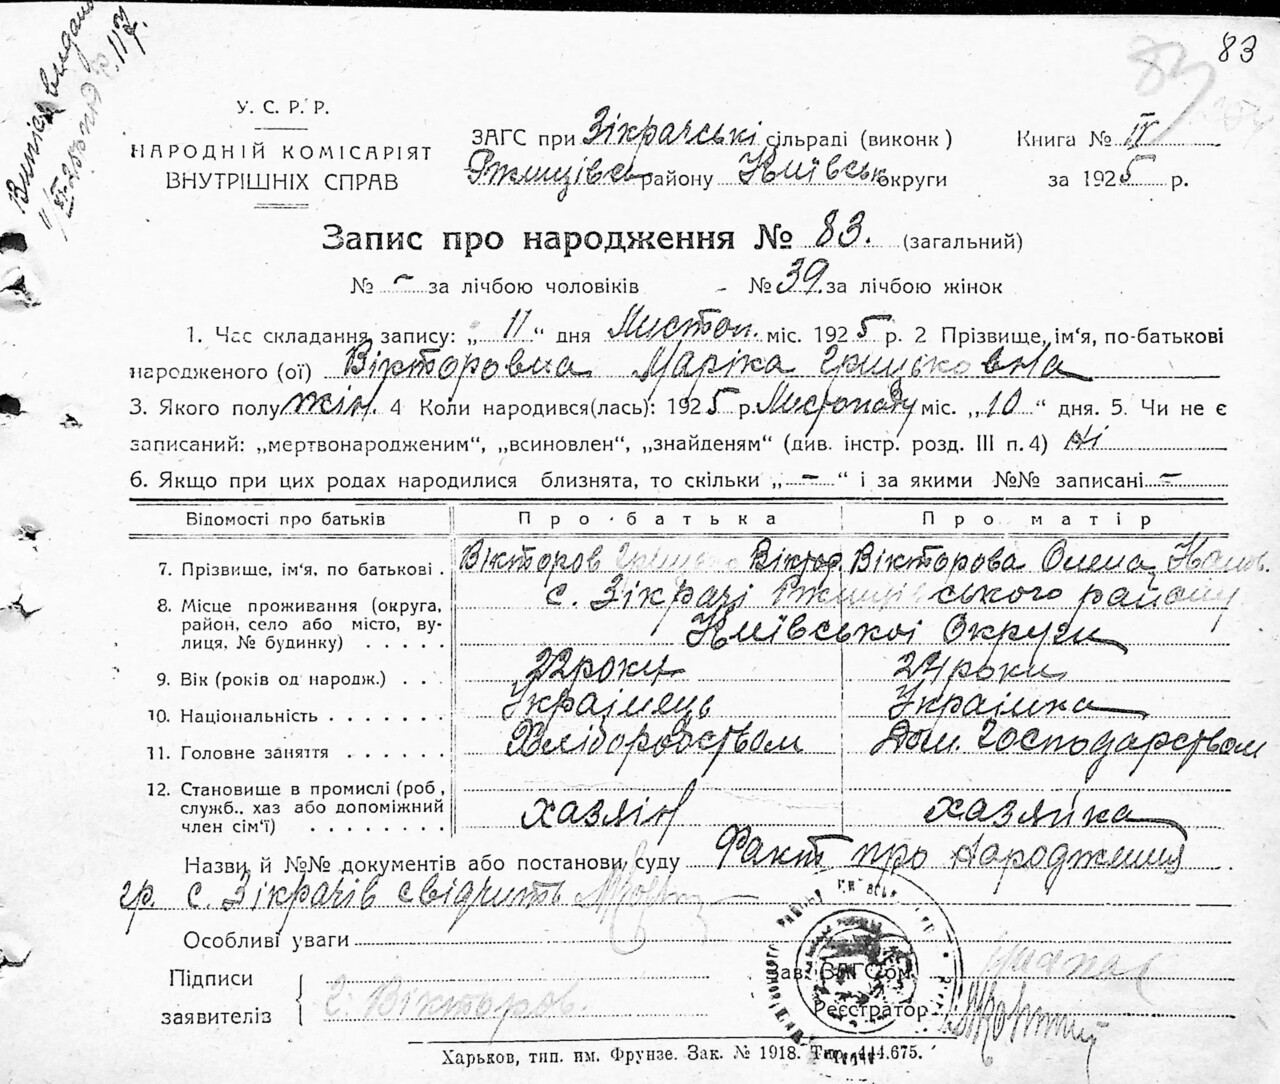 83
Випись видано
У. С. Р. Р.
НАРОДНІЙ КОМІСАРІЯТ
ВНУТРІШНІХ СПРАВ
ЗАГС при Зікрачські сільраді (виконк)
Ржищівськ району Київськ округи
Книга № IV
за 1925 р.
Запис про народження № 83. (загальний)
№ - за лічбою чоловіків - № 39. за лічбою жінок
1. Час складання запису: „ 11 “ дня Листоп. міс. 1925 р. 2 Прізвище, ім'я, по-батькові
народженого (ої) Вікторовна Маріка Грицьковна
3. Якого полу жін. 4 Коли народився(лась): 1925 р. Листопаду міс. „10“ дня. 5. Чи не є
записаний: „мертвонародженим“, „всиновлен“, „знайденям“ (див. інстр. розд. III п. 4) ні
6. Якщо при цих родах народилися близнята, то скільки „ - “ і за якими №№ записані -
Відомості про батьків Про батька Про матір
7. Прізвище, ім'я, по батькові . Вікторов Грицько Віктор. Вікторова Олена Іванов.
8. Місце проживання (округа, район, село або місто, вулиця, № будинку) . . . . .
с. Зікрачі Ржищівського району
Київської Округи
9. Вік (років од народж.) . . . 22 роки 24 роки
10. Національність . . . . . . . Українець Українка
11. Головне заняття . . . . . . Хліборобством Дом. Господарством
12. Становище в промислі (роб, служб., хаз або допоміжний член сім'ї) . . . . . . . . хазяін хазяйка
Назви й №№ документів або постанови суду Факт про народження
гр. с. Зікрачів свідчить
Особливі уваги
Підписи
заявителіз
Г. Вікторов.
Зав. ЗАГС'ом
Реєстратор
Харьков, тип. им. Фрунзе. Зак. № 1918. Тир. 444.675.